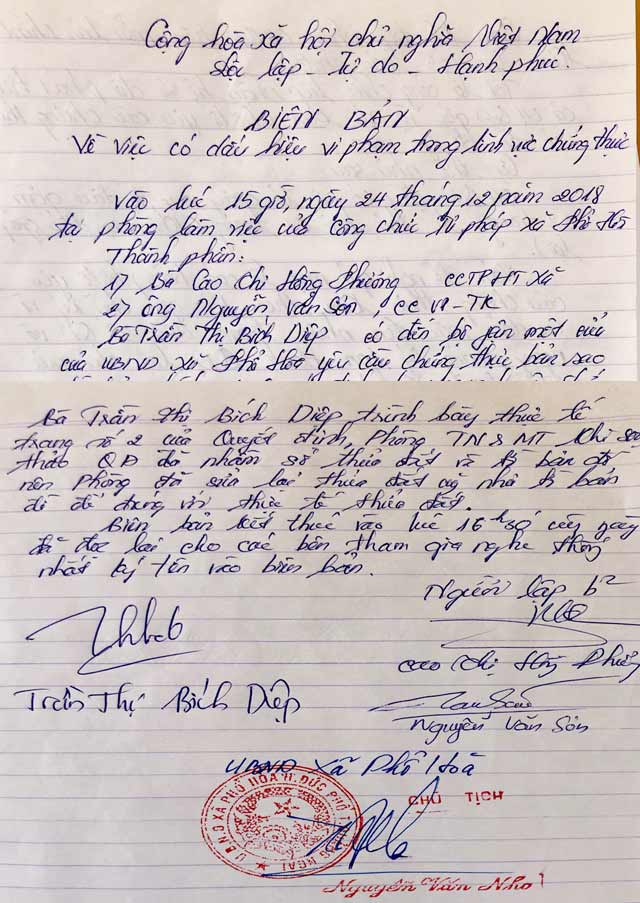 Cộng hòa xã hội chủ nghĩa Việt Nam
Độc lập - Tự do - Hạnh phúc.
BIÊN BẢN
Về việc có dấu hiệu vi phạm trong lĩnh vực chứng thực
Vào lúc 15 giờ, ngày 24 tháng 12 năm 2018
tại phòng làm việc của công chức tư pháp xã Phổ Hòa
Thành phần:
1) Bà Cao Chị Hồng Phương CCTPHT Xã
2) Ông Nguyễn Văn Sơn, CC VP-TK
Bà Trần Thị Bích Diệp có đến bộ phận một cửa
của UBND xã Phổ Hòa yêu cầu chứng thực bản sao
Bà Trần Thị Bích Diệp trình bày thực tế
trang số 2 của Quyết định, Phòng TN & MT khi soạn
thảo QĐ đã nhầm số thửa đất và tờ bản đồ
nên Phòng đã sửa lại thửa đất và tờ bản
đồ để đúng với thực tế thửa đất.
Biên bản kết thúc vào lúc 16h30 cùng ngày
đã đọc lại cho các bên tham gia nghe thống
nhất ký tên vào biên bản.
Người lập b²
Cao Chị Hồng Phương
Trần Thị Bích Diệp
Nguyễn Văn Sơn
UBND Xã Phổ Hoà
CHỦ TỊCH
U.B.N.D XÃ PHỔ HÒA H. ĐỨC PHỔ T. QUẢNG NGÃI
Nguyễn Văn Nho